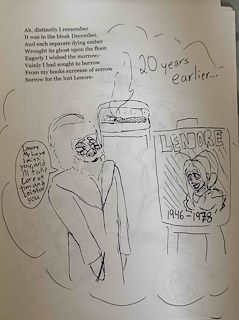 Ah, distinctly I remember
It was in the bleak December,
And each separate dying ember
Wrought its ghost upon the floor.
Eagerly I wished the morrow;
Vainly I had sought to borrow
From my books surcease of sorrow
Sorrow for the lost Lenore-
20 years
earlier...
Lenore
My Love
I miss
you, and
I'll take
care of
tim and
you
LENORE
1946-1978